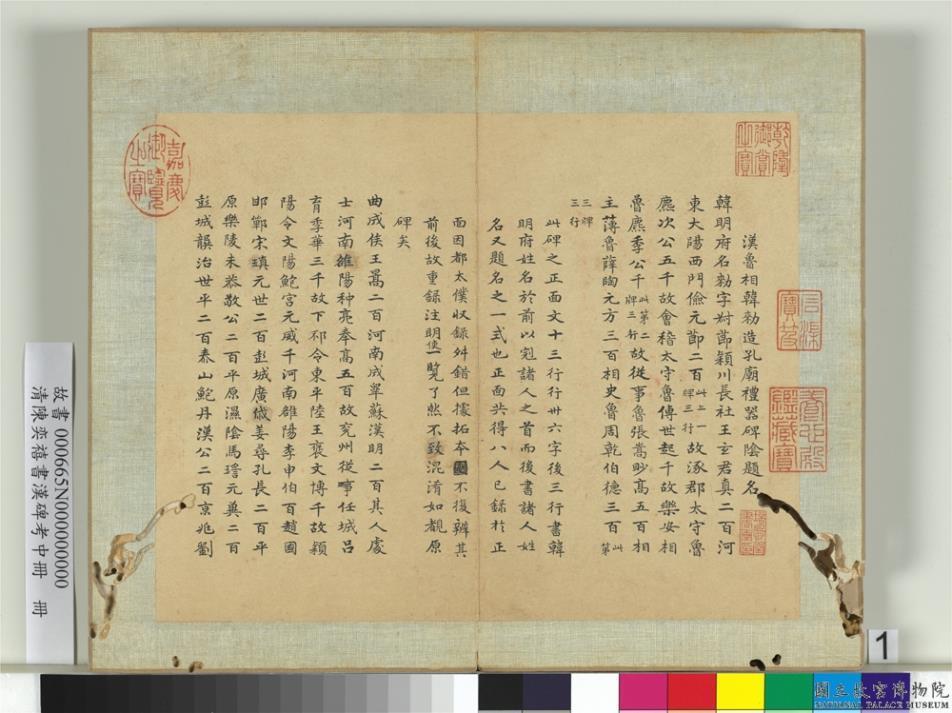 漢魯相韓勑造孔廟禮器碑陰題名
韓明府名勑字叔節潁川長社王玄君真二百河
東大陽西門儉元節二百此上一碑三行故涿郡太守魯
麃次公五千故會稽太守魯傅世起千故樂安相
魯麃季公千此第二碑三行故從事魯張嵩眇高五百相
主薄魯薛陶元方三百相史魯周乾伯德三百此第
三碑三行
此碑之正面文十三行行卅六字後三行書韓
明府姓名於前以冠諸人之首而後書諸人姓
名又題名之一式也正面共得八人已錄於正
面因都太僕収錄舛錯但據拓本不復辨其
前後故重録注明使一覽了然不致混淆如覩原
碑矣
曲成侯王暠二百河南成睾蘇漢明二百其人處
士河南雒陽种亮奉高五百故兖州從事任城吕
育季華三千故下邳令東平陸王褒文博千故潁
陽令文陽鮑宮元威千河南雒陽李申伯百趙國
邯鄲宋瑱元世二百彭城廣戚姜尋孔長二百平
原樂陵朱恭敬公二百平原濕陰馬瑨元冀二百
彭城龔治世平二百泰山鮑丹漢公二百京兆劉
乾隆御賞之寶
石渠寶笈
養心殿鑑藏寶
嘉慶御覽之寶
故書 000665N000000000
清陳奕禧書漢碑考中冊 冊
1
國立故宮博物院
NATIONAL PALACE MUSEUM